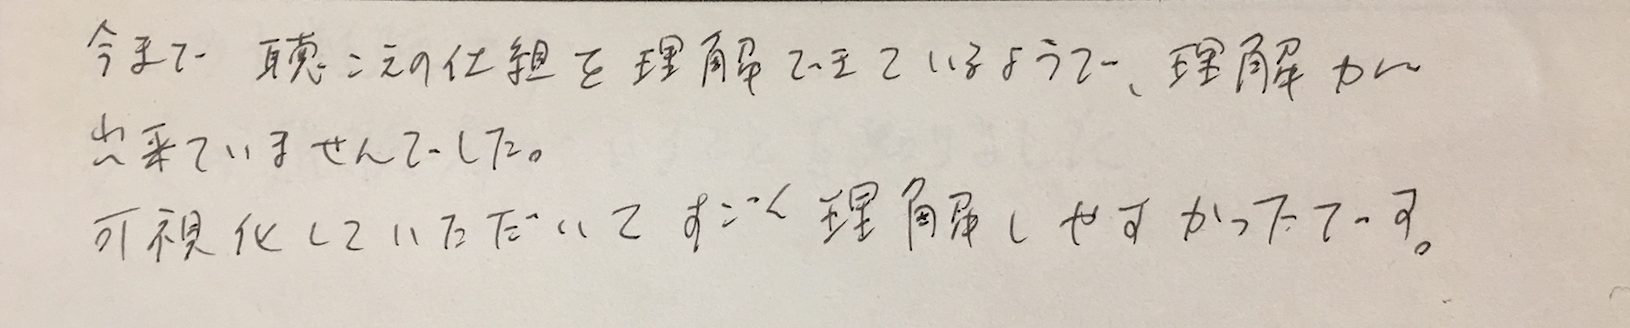 今まで 聴こえの仕組を理解できているようで、理解が
出来ていませんでした。
可視化していただいてすごく理解しやすかったです。